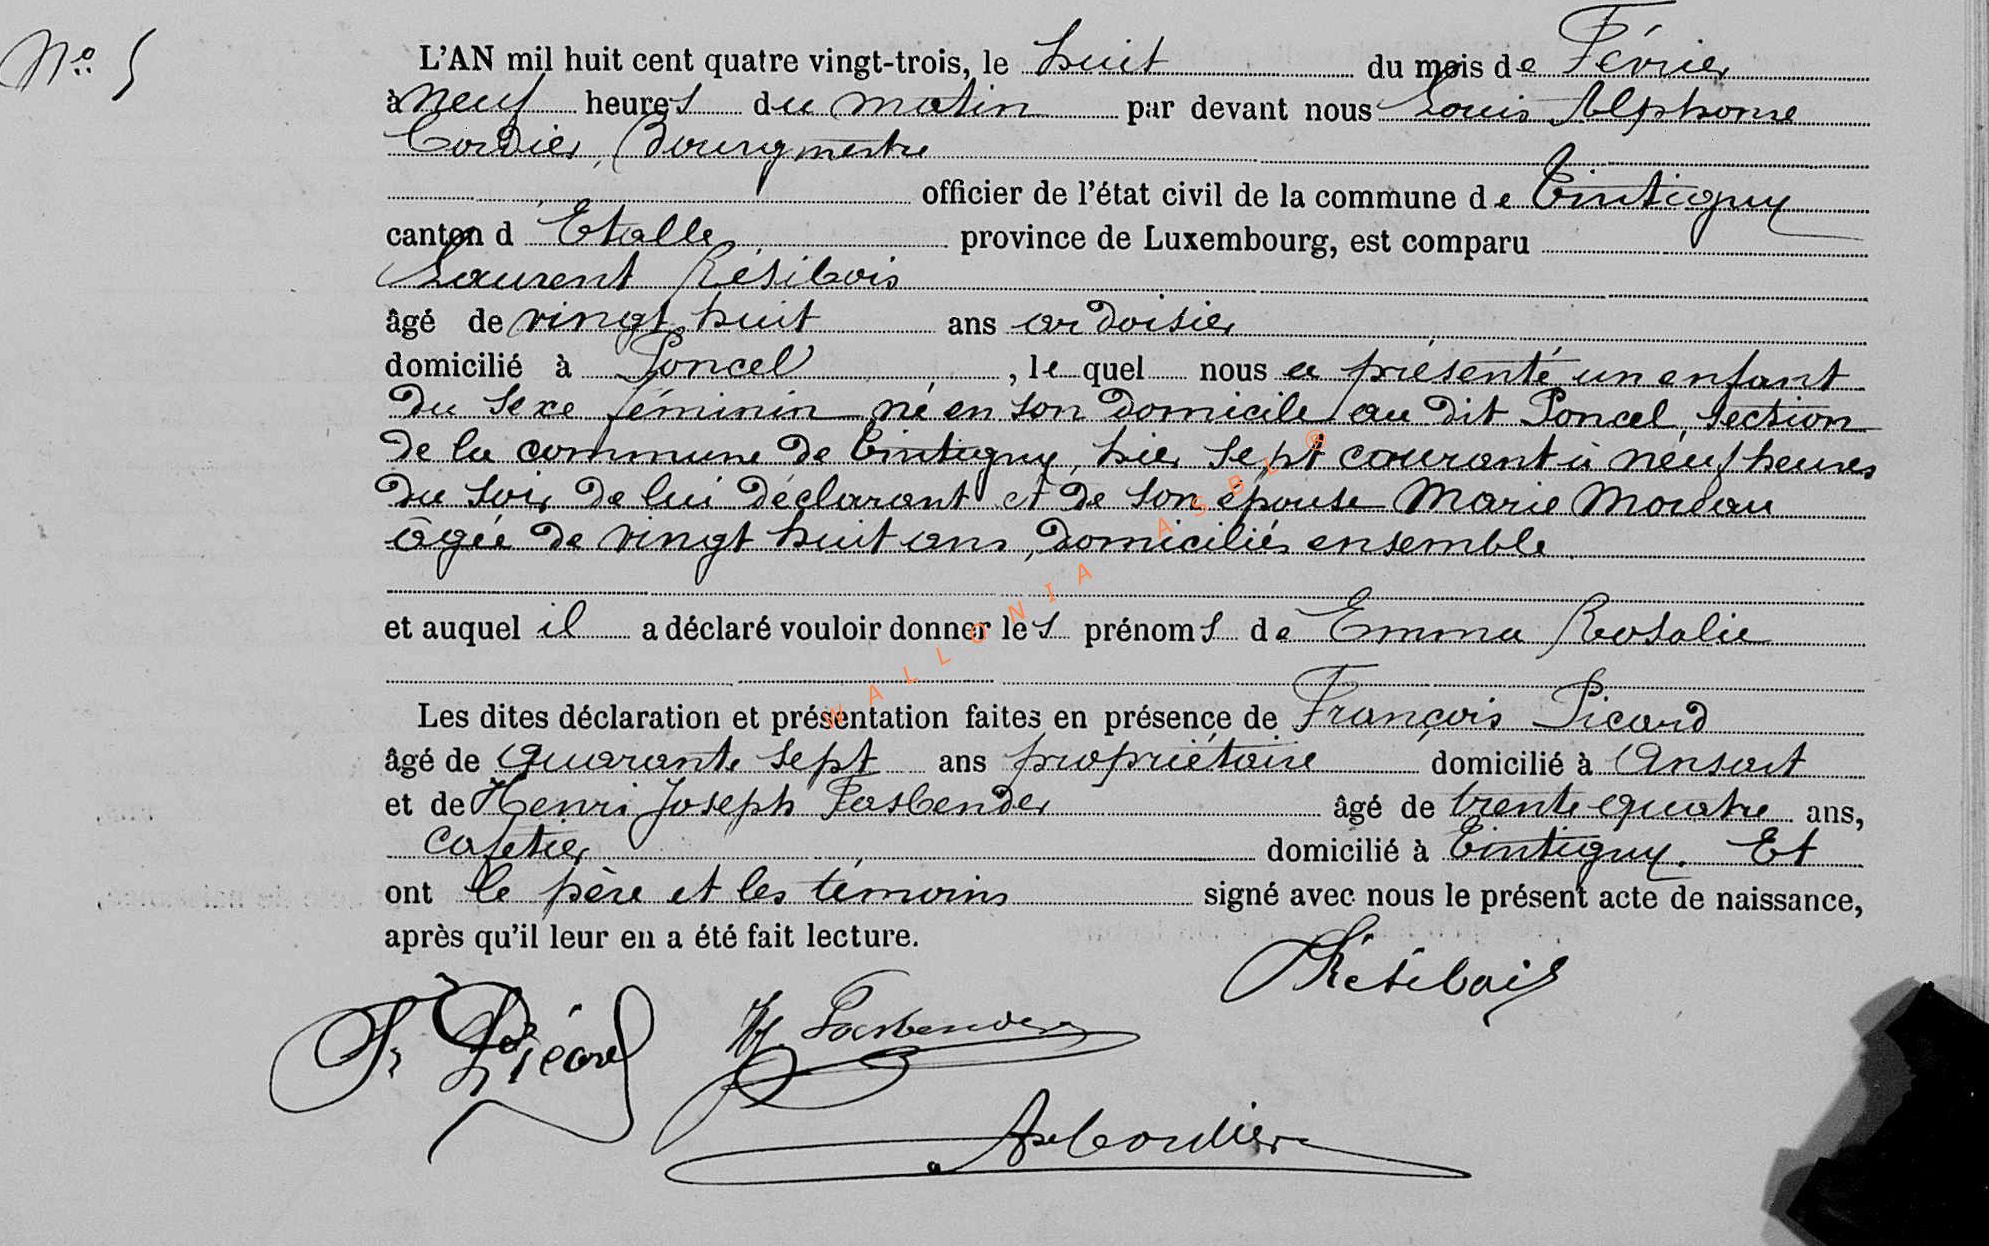 N° 5
L'AN mil huit cent quatre vingt-trois, le huit du mois de Février
à neuf heures du matin par devant nous Louis Alphonse
Cordier, Bourgmestre
officier de l'état civil de la commune de Tintigny
canton d Etalle, province de Luxembourg, est comparu
Laurent Résibois
âgé de vingt huit ans ardoisier
domicilié à Poncel, le quel nous a présenté un enfant
du sexe féminin né en son domicile au dit Poncel, section
de la commune de Tintigny, hier sept courant à neuf heures
du soir, de lui déclarant et de son épouse Marie Moreau
âgée de vingt huit ans, domiciliés ensemble.
et auquel il a déclaré vouloir donner les prénoms de Emma Rosalie
Les dites déclaration et présentation faites en présence de François Picard
âgé de quarante sept ans propriétaire domicilié à Ansart
et de Henri Joseph Fasbender âgé de trente quatre ans,
cafetier domicilié à Tintigny. Et
ont le père et les témoins signé avec nous le présent acte de naissance,
après qu'il leur en a été fait lecture.
Résibois
Fr Picard
H. Fasbender
A Cordier
WALLONIA ASBL ®